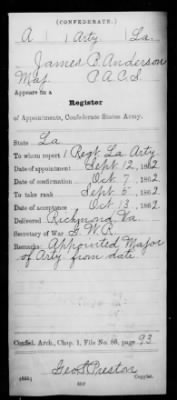 (CONFEDERATE.)
A | 1 Arty | La.
James P. Anderson
Maj P.A.C.S.
Appears on a
Register
of Appointments, Confederate States Army.
State La
To whom report 1 Regt La Arty
Date of appointment Sept 12, 1862
Date of confirmation Oct 7, 1862
To take rank Sept 5, 1862
Date of acceptance Oct 13, 1862
Delivered Richmond Va
Secretary of War G.W.R.
Remarks: Appointed Major
of Arty from date
Confed. Arch., Chap. 1, File No. 86, page 93
Geo S Preston
Copyist.